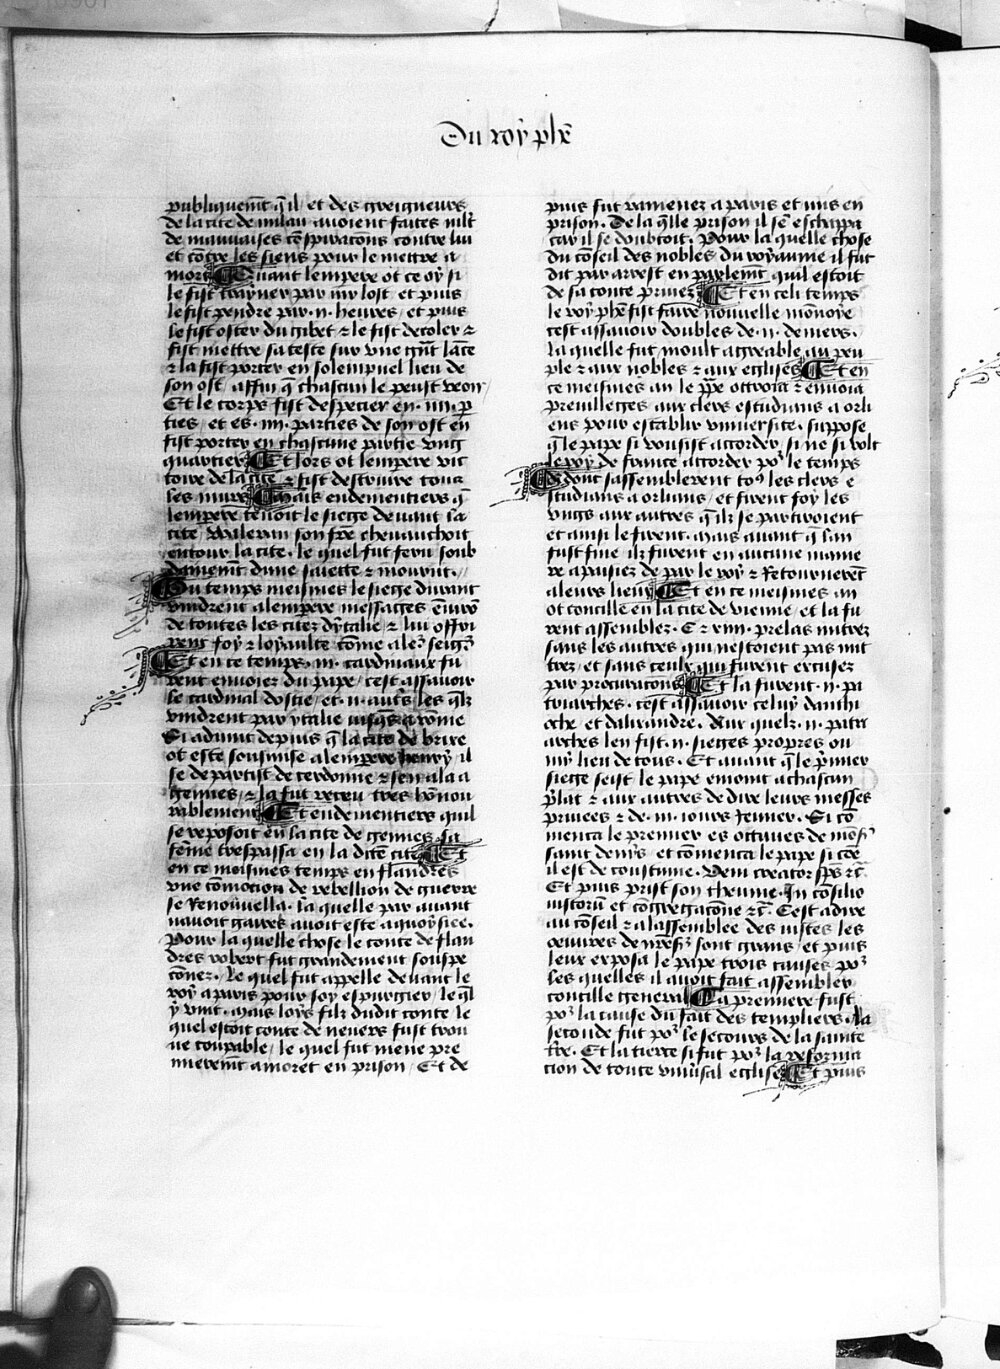 Du roy phẽ
publiquemẽt q̃ il et des greigneurs
de la cite de milan avoient faites mlt
de mauvaises cõspiracõns contre lui
et cõtre les siens pour le mettre a
mort Quant lempere ot ce oy si
le fist trayner par my lost et puis
le fist pendre par .ii. heures et puis
le fist oster du gibet ⁊ le fist decoler ⁊
fist mettre sa teste sur une grãt lãce
⁊ la fist porter en solempnel lieu de
son ost affin q̃ chascun le peust veoir
Et le corps fist despecier en .iiii. p̱
ties et es .iiii. parties de son ost en
fist porter en chascune partie vng
quartier Et lors ot lempere vic
toire de la cite ⁊ fist destruire tous
les murs Mais endementiers q̃
lempere tenoit le siege devant la
cite Waleran son frẽ chevauchoit
entour la cite . le quel fut feru soub
dainemẽt dune saiette ⁊ mourut .
Ou temps meismes le siege durant
vindrent a lempere messages ẽuirõ
de toutes les citez dytalie ⁊ lui offri
rent foy ⁊ loyaulte cõme a leꝰ seigꝰ
Et en ce temps .iii. cardinaux fu
rent envoiez du pape cest assavoir
le cardinal dostie et .ii. autrs les q̃lz
vindrent par ytalie jusqs a rõme
Si advint depuis q̃ la cite de brixe
ot este sousmise a lempere henry il
se departist de cerdonne ⁊ sen ala a
gennes ⁊ la fut receu tres hõnou
rablement Et endementiers quil
se reposoit en la cite de gennes sa
fẽme trespassa en la dicte cite Et
en ce meismes temps en flandres
une cõmotion de rebellion de guerre
se renouvella . la quelle par avant
navoit gaires avoit este aquoysiee .
Pour la quelle chose le conte de flan
dres robert fut grandement souspe
cõnez . le quel fut appelle devant le
roy a paris pour soy espurgier le q̃l
y vint . mais loys filz dudit conte le
quel estoit conte de nevers fust trou
ue coupable le quel fut mene pre
mieremẽt a moret en prison Et de
puis fut ramenez a paris et mis en
prison . De la q̃lle prison il se eschappa
car il se doubtoit . Pour la quelle chose
du cõseil des nobles du royaume il fut
dit par arrest en parlemẽt quil estoit
de sa conte privez Et en celi temps
le roy phẽ fist faire nouvelle mõnoye
cest assavoir doubles de .ii. deniers .
la quelle fut moult agreable au peu
ple ⁊ aux nobles ⁊ aux eglises Et en
ce meismes an le pp̃e ottroia ⁊ envoia
previlleges aux clers estudians a orli
ens pour establir université . suppose
q̃ le pape si vousist accorder si ne si volt
le roy de france accorder poꝰ le temps
Et dont sassemblerent toꝰ les clers e
studians a orliens et firent foy les
vngs aux autres q̃ ilz se partiroient
et ainsi le firent . mais avant q̃ lan
fust fine ilz furent en aucune manie
re apaisiez de par le roy ⁊ retournerẽt
a leurs lieux Et en ce meismes an
ot concille en la cite de vienne et la fu
rent assemblez . C et xiiii . prelas mitrez
sans les autres qui nestoient pas mit
trez et sans ceulx qui furent excusez
par procuracõns Et la furent .ii. pa
triarches . cest assavoir celuy danthi
oche et dalixandre . Aux quelz .ii. patri
arches len fist .ii. sieges propres ou
my lieu de tous . Et avant q̃ le p̃mier
siege seist le pape enioint a chascun
p̃lat ⁊ aux autres de dire leurs messes
privees ⁊ de .iii. iours jeuner . Si cõ
menca le premier es octaves de mõsꝰ
saint denis et cõmenca le pape si cõe
il est de coustume . Veni creator sp̃s ⁊c̃ .
Et puis prist son theume . In cõsilio
iustorũ et cõgregacõne ⁊c̃ . Cest a dire
au cõseil ⁊ a lassemblee des iustes les
oeuvres de nr̃e sꝰ sont grans et puis
leur exposa le pape trois causes poꝰ
les quelles il avoit fait assembler
concille general La premiere fust
poꝰ la cause du fait des templiers . la
seconde fut poꝰ le secours de la sainte
tr̃e . Et la tierce si fut poꝰ la reforma
cion de toute universal eglise Et puis